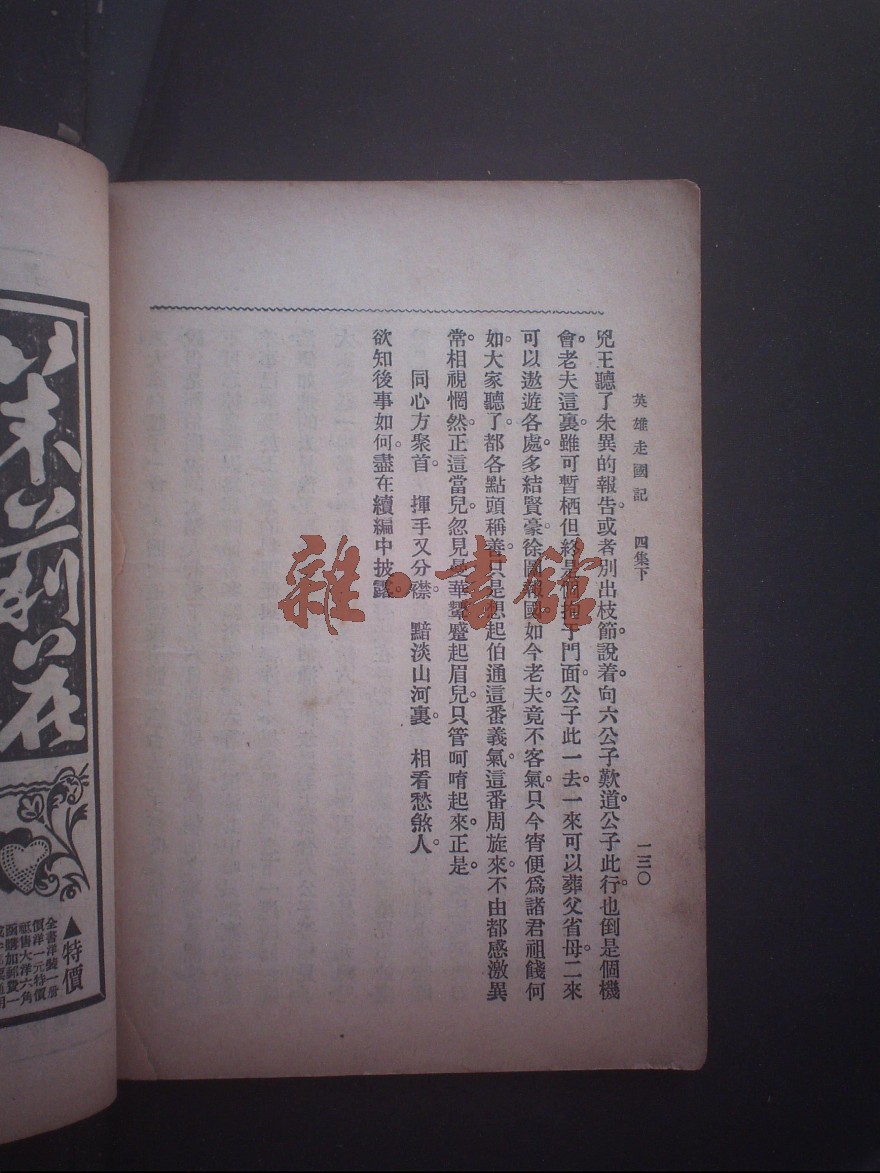 英雄走國記　四集下　一三〇
兇王聽了朱異的報告。或者別出枝節。說着。向六公子歎道。公子此行。也倒是個機
會。老夫這裏。雖可暫栖。但終是門面。公子此一去一來。可以葬父省母。二來
可以遨遊各處。多結賢豪。徐圖報國。如今老夫竟不客氣。只今宵便爲諸君祖餞何
如。大家聽了。都各點頭稱善。只是想起伯通這番義氣。這番周旋。來不由都感激異
常。相視惘然。正這當兒。忽見曼華顰蹙起眉兒。只管呵唷起來。正是。
同心方聚首。　揮手又分襟。　黯淡山河裏。　相看愁煞人。
欲知後事如何。盡在續編中披露。
雜·書館
茉莉花
▲特價
全書洋裝一册
價洋一元特價
祗售大洋六角
函購加郵費一